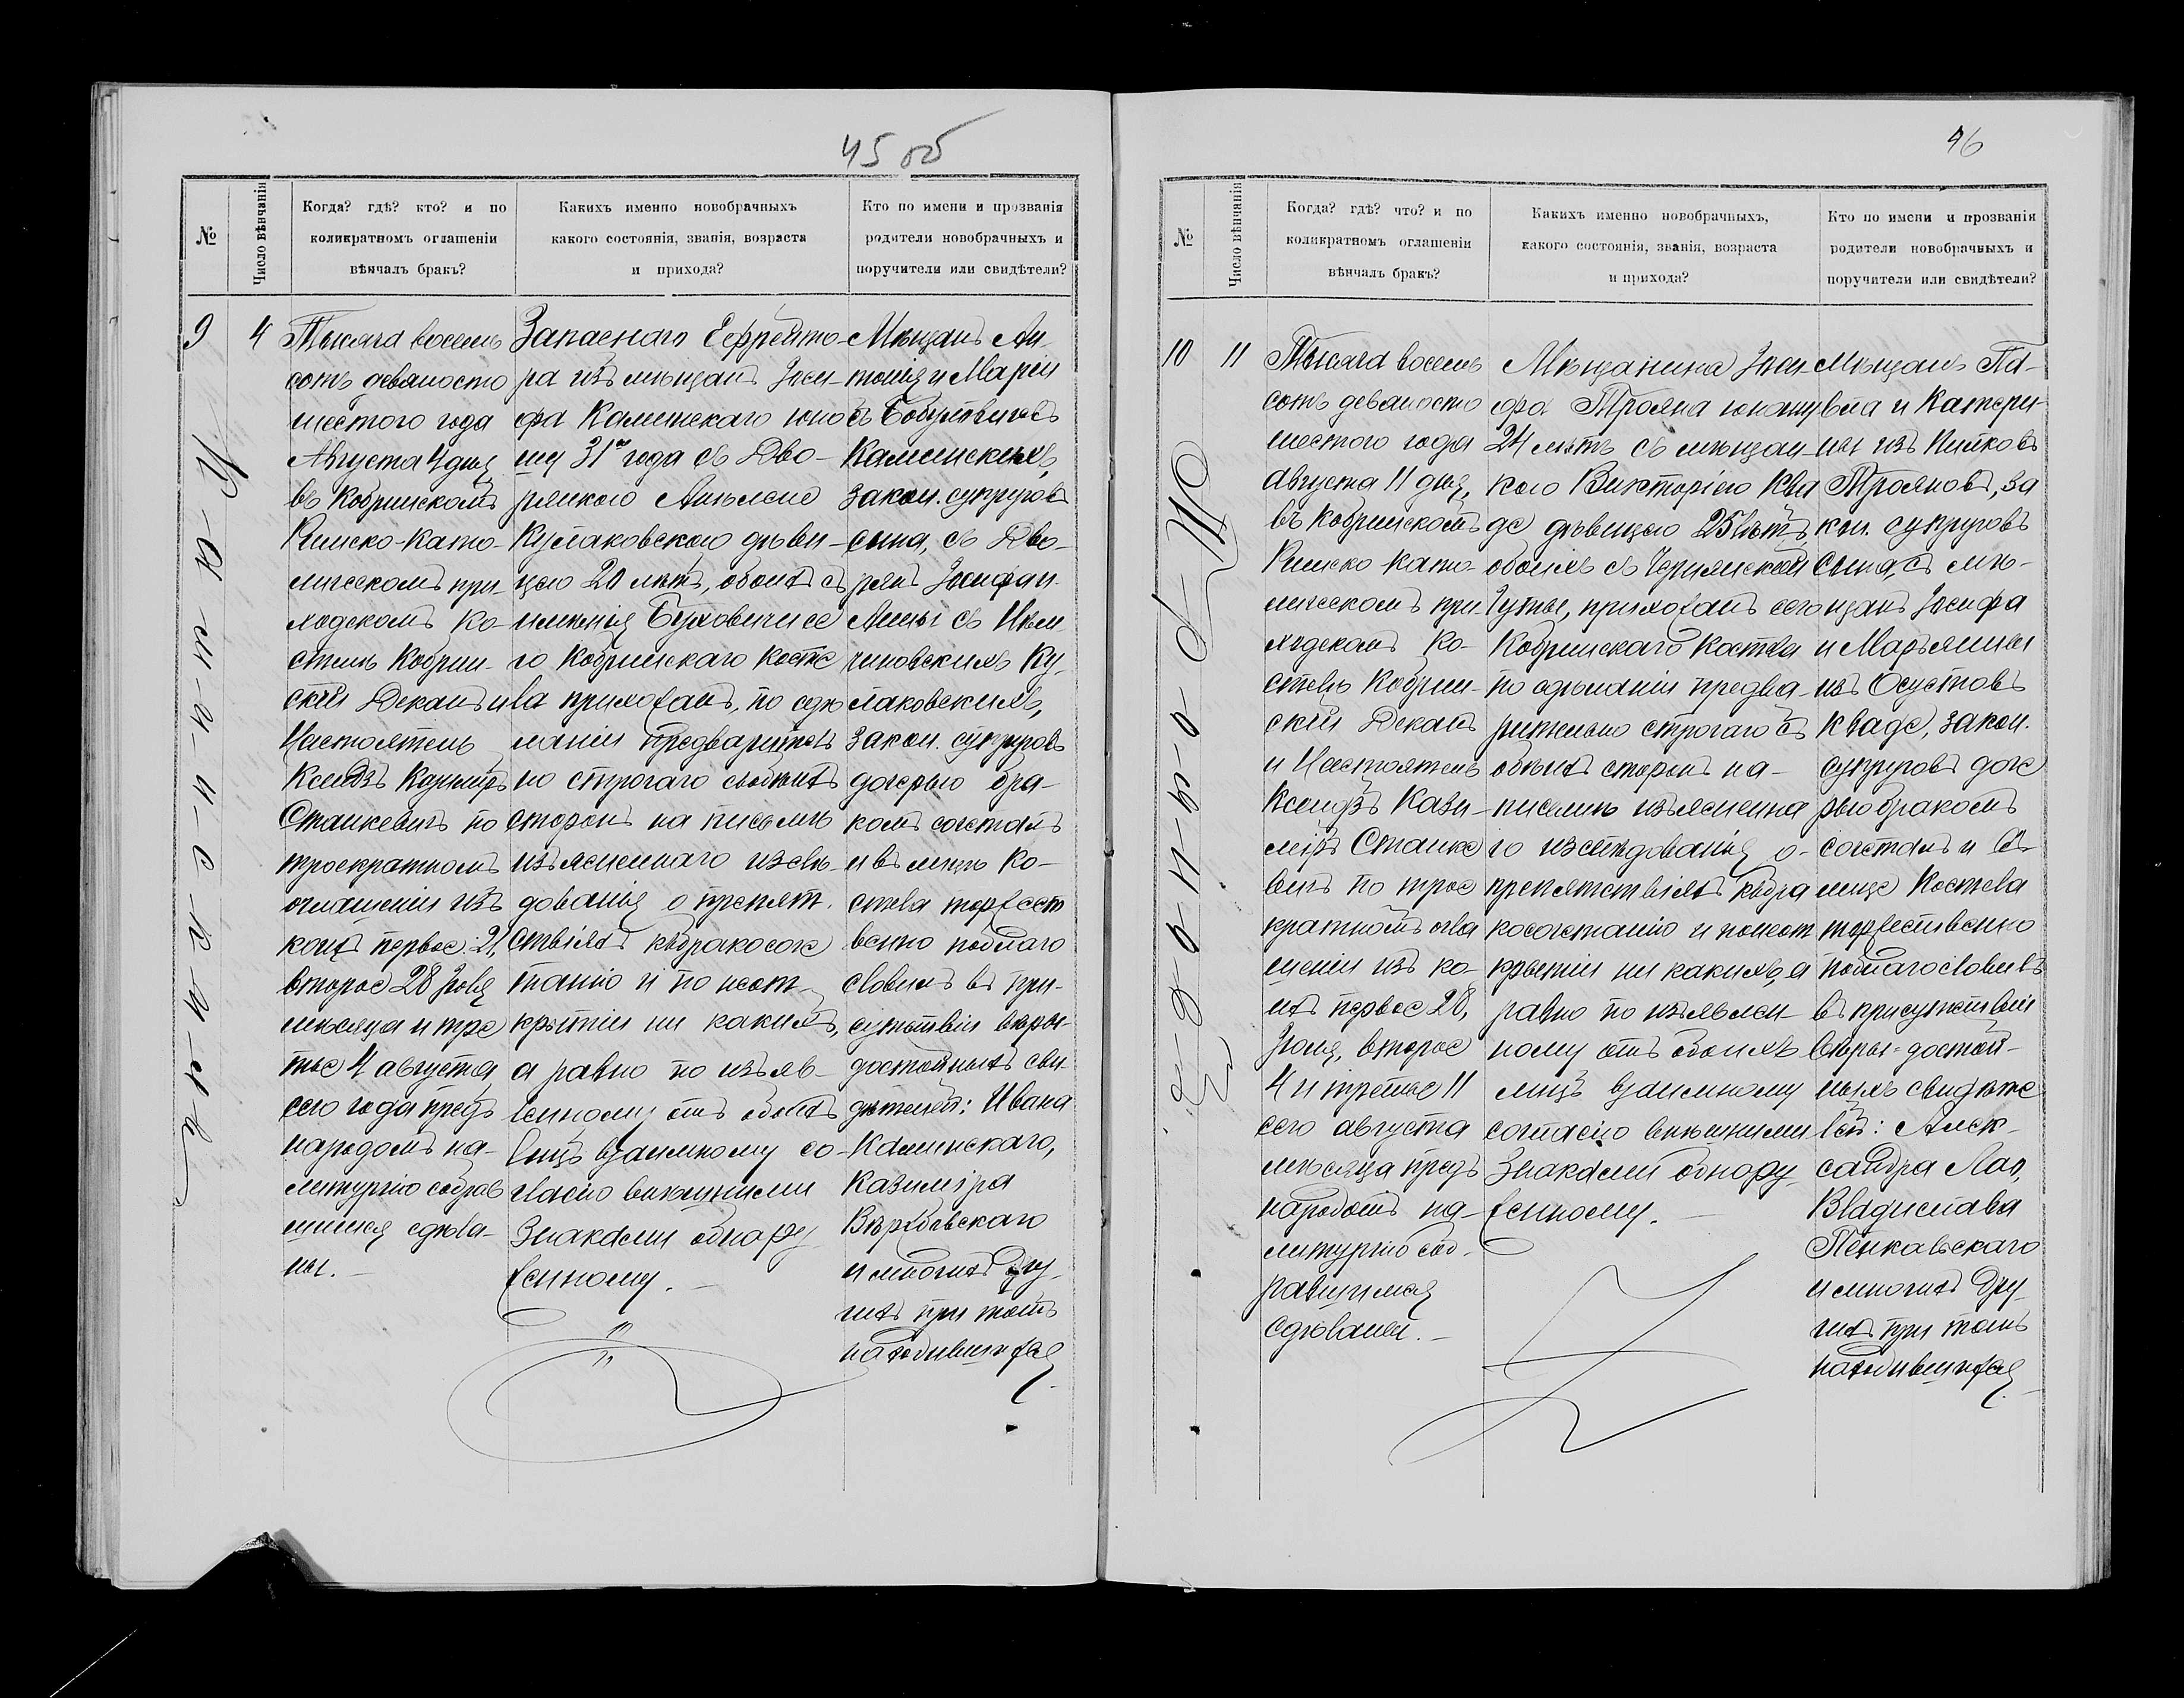 45 об
№
Число вѣнчанія
Когда? гдѣ? кто? и по
коликратномъ оглашеніи
вѣнчалъ бракъ?
Какихъ именно новобрачныхъ
какого состоянія, званія, возраста
и прихода?
Кто по имени и прозванія
родители новобрачныхъ и
поручители или свидѣтели?
9
4
Тысяча восемь
сотъ девяносто
шестого года
Августа 4 дня
въ Кобринскомъ
Римско-Като-
лическомъ при-
ходскомъ Ко-
стелѣ Кобрин-
скій Деканъ и
Настоятель
Ксендзъ Казиміръ
Станкевичъ по
троекратномъ
оглашеніи изъ
коихъ первое: 21,
второе 28 Іюля
мѣсяца и тре
тье 4 августа
сего года предъ
народомъ на-
литургію собрав
шимся сдѣла-
ны.-
Запаснаго Ефрейто-
ра изъ мѣщанъ Іоси-
фа Каминскаго юно
шу 31го года съ Дво-
рянкою Анелею
Кулаковскою дѣви-
цею 20 лѣтъ, обоихъ съ
имѣнія Буховичи се
го Кобринскаго Косте
ла прихожанъ, по сдѣ
ланіи предваритель
но строгаго съ обоихъ
сторонъ на письмѣ
изъясненаго изслѣ-
дованія о препят.
ствіяхъ къ бракосоче
танію и по неот-
крытіи ни какихъ,
а равно по изъяв-
леиному отъ обоихъ
лицъ взаимному со-
гласію внѣшними
знаками обнару
женному.-
Мѣщанъ Ан
тонія и Маріи
съ
Каминскихъ
закон. супруговъ
сына, съ Дво-
рянъ Іосифа и
Анны съ
Ку
лаковскихъ,
закон. супруговъ
дочерью бра-
комъ сочеталъ
и въ лицѣ Ко-
стела торжест
венно поблаго
словилъ въ при-
сутствіи вѣры-
достойныхъ сви-
дѣтелей: Ивана
Каминскаго,
Казиміра
и многихъ дру-
гихъ при томъ
находившихся
К-а-м-и-н-с-к-а-г-о
46
№
Число вѣнчанія
Когда? гдѣ? что? и по
коликратномъ оглашеніи
вѣнчалъ бракъ?
Какихъ именно новобрачныхъ,
какого состоянія, званія, возраста
и прихода?
Кто по имени и прозванія
родители новобрачныхъ и
поручители или свидѣтели?
10
11
Тысяча восемь
сотъ девяносто
шестого года
Августа 11 дня,
въ Кобринскомъ
Римско-като-
лическомъ при
ходскомъ Ко-
стелѣ Кобрин-
скій Деканъ
и Настоятель
Ксендзъ Кази-
міръ Станке
вичъ по трое
кратномъ огла
шеніи изъ ко-
ихъ первое 28,
Іюля, второе
4 и третье 11
сего августа
мѣсяца предъ
народомъ на-
литургію соб-
равшимся
сдѣланы.-
Мѣщанина Іоси
фа Трояна юношу
24 лѣтъ съ мѣщан
кою Викторіею Ква
де дѣвицею 25 лѣтъ
обоихъ съ
прихожанъ сего
Кобринскаго Костела
по сдѣланіи предва-
рительно строгаго съ
обоихъ сторонъ на-
письмѣ изъясненна
го изслѣдованія о-
препятствіяхъ къ бра
косочетанію и по неот
крытіи ни какихъ, а
равно по изъявлен-
ному отъ обоихъ
лицъ взаимному
согласію внѣшними
знаками обнару-
женному.-
Мѣщанъ Па-
вла и Катери-
ны изъ
Трояновъ, за
кон. супруговъ
сына, съ мѣ-
щанъ Іосифа
и Марьянны
изъ
Кваде, закон.
супруговъ доче
рью бракомъ
сочеталъ и въ
лице Костела
торжественно
поблагословилъ
въ присутствіи
вѣры-достой-
ныхъ свидѣте
лей: Алек-
сандра
Владислава
Пенкавскаго
и многихъ дру
гихъ при томъ
находившихся